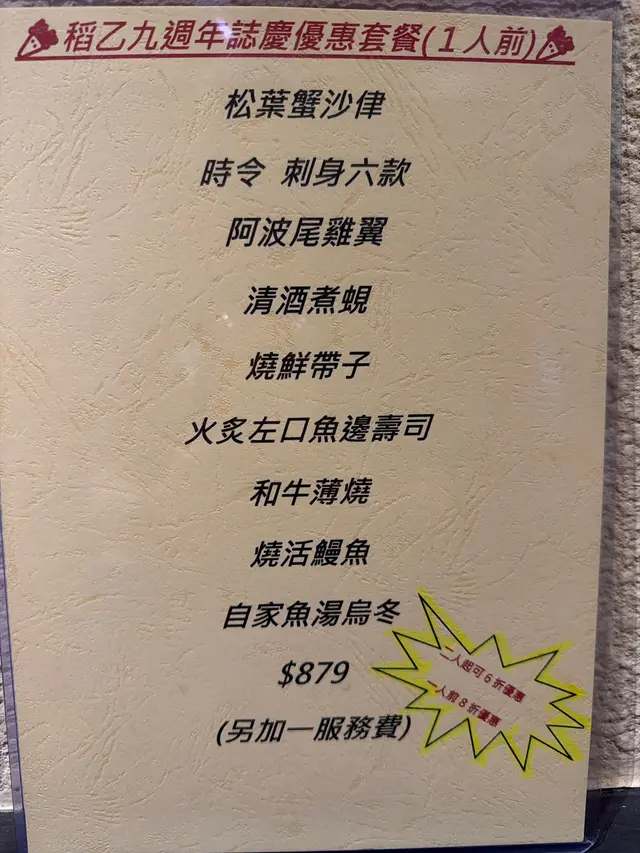 稻乙九週年誌慶優惠套餐(1人前)
松葉蟹沙律
時令 刺身六款
阿波尾雞翼
清酒煮蜆
燒鮮帶子
火炙左口魚邊壽司
和牛薄燒
燒活鰻魚
自家魚湯烏冬
$879
(另加一服務費)
二人起可6折優惠
一人前8折優惠